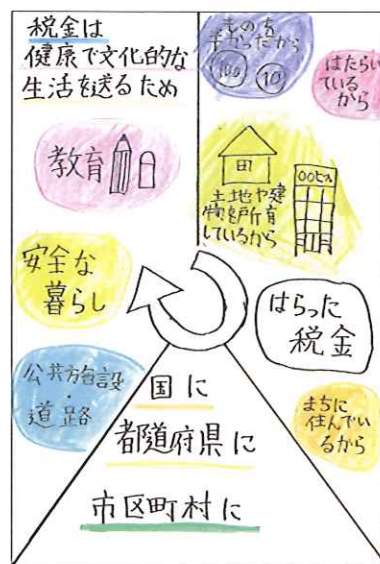 税金は
健康で文化的な
生活を送るため
教育
安全な
暮らし
公共施設
・
道路
ものを
かったから
100
10
はたらい
ているから
土地や建
物を所有
しているから
〇〇ビル
はらった
税金
まちに
住んでい
るから
国に
都道府県に
市区町村に